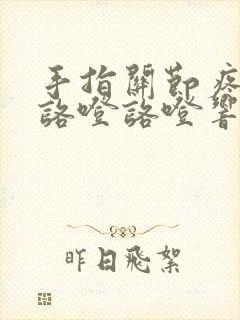 手指關節疼
詻噔詻噔響
昨日飛絮